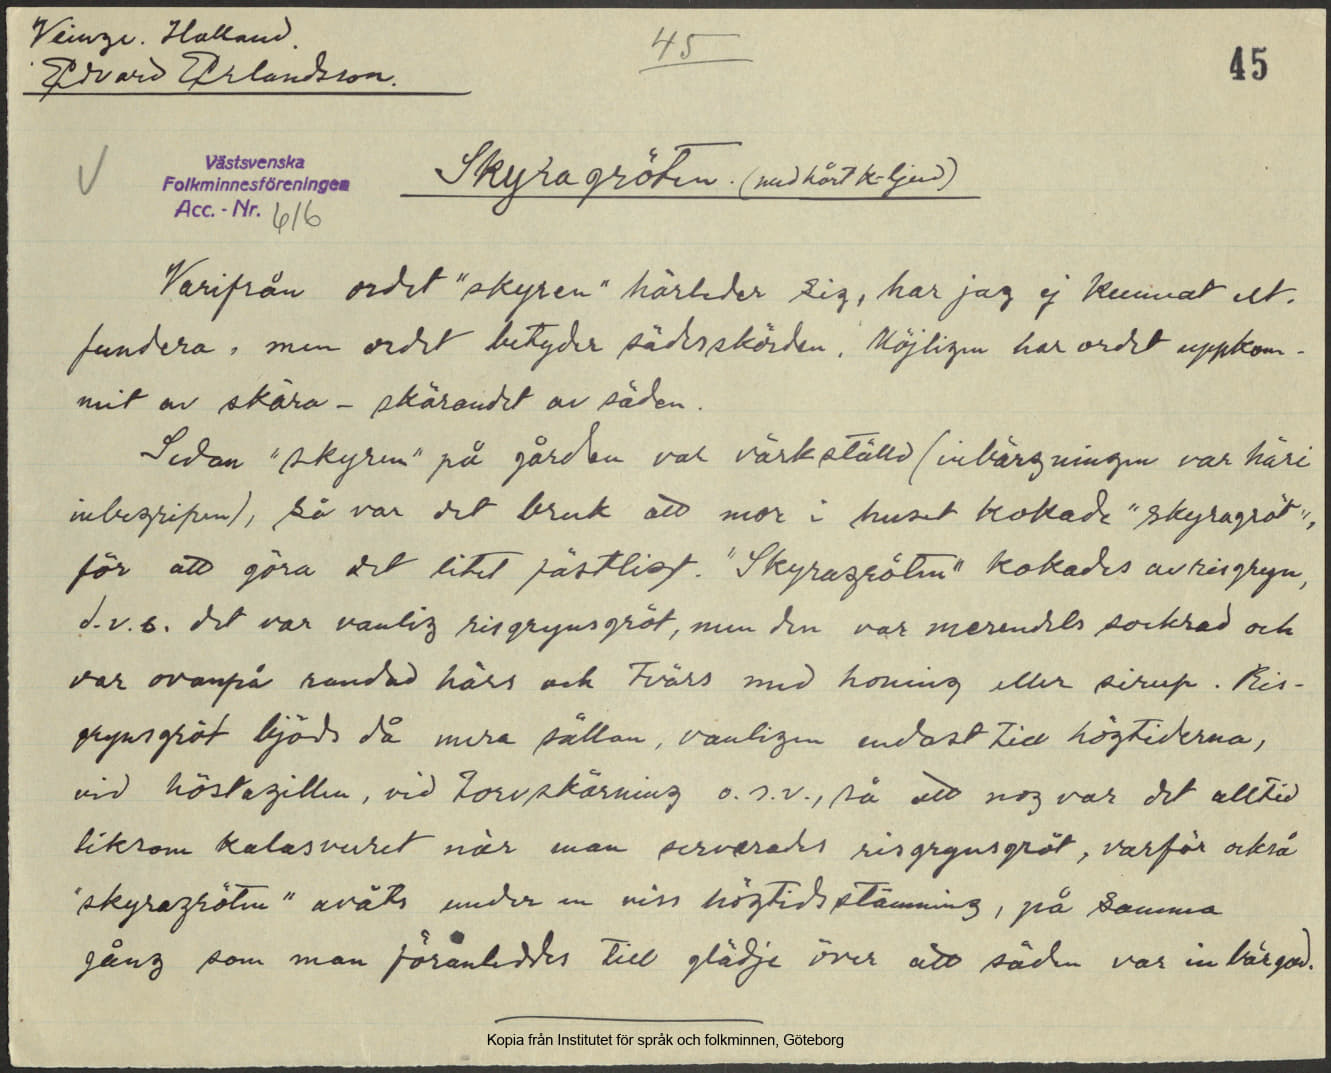 Veinge. Halland.
Edvard Erlandsson.
45
45
Västsvenska
Folkminnesföreningen
Acc. - Nr. 616
Skyragröten. (med hårt k-ljud)
Varifrån ordet "skyren" härleder sig, har jag ej kunnat ut-
fundera, men ordet betyder sädesskörden. Möjligen har ordet uppkom-
mit av skära - skärandet av säden.
Sedan "skyren" på gården var värkställd (inbärgningen var häri
inbegripen), så var det bruk att mor i huset kokade "skyragröt",
för att göra det litet fästligt. "Skyragröten" kokades av risgryn,
d.v.s. det var vanlig risgrynsgröt, men den var merendels sockrad och
var ovanpå randad härs och tvärs med honing eller sirup. Ris-
grynsgröt bjöds då mera sällan, vanligen endast till högtiderna,
vid höstagillen, vid torvskärning o.s.v., så att nog var det alltid
liksom kalasvuret när man serverades risgrynsgröt, varför också
"skyragröten" avåts under en viss högtidsstämning, på samma
gång som man föranleddes till glädje över att säden var inbärgad.
Kopia från Institutet för språk och folkminnen, Göteborg